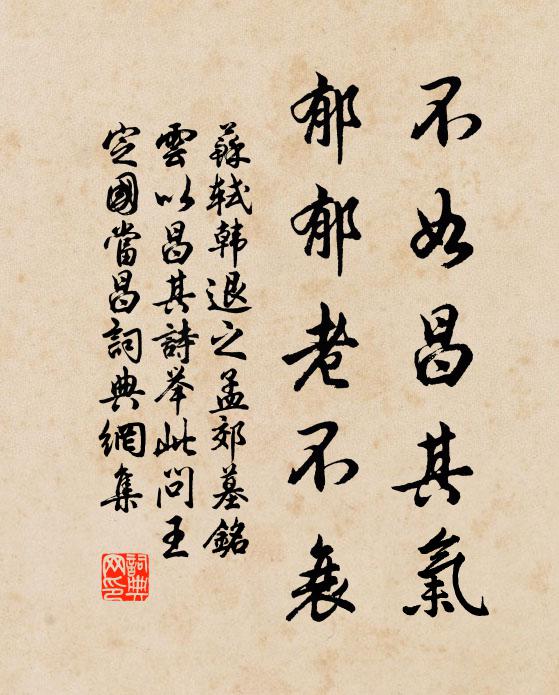 不如昌其氣
郁郁老不衰
蘇軾韩退之孟郊墓銘
雲以昌其詩举此問王
定國當昌詞典網集
詞典网印